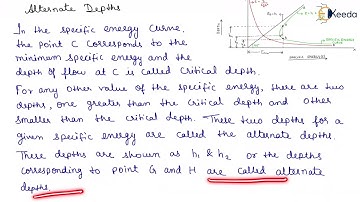 Alternate Depths
In the specific energy curve,
the point C corresponds to the
minimum specific energy and the
depth of flow at C is called critical depth.
For any other value of the specific energy, there are two
depths, one greater than the critical depth and other
smaller than the critical depth. These two depths for a
given specific energy are called the alternate depths.
These depths are shown as h₁ & h₂ or the depths
corresponding to point G and H are called alternate
depths.
Ekeeda